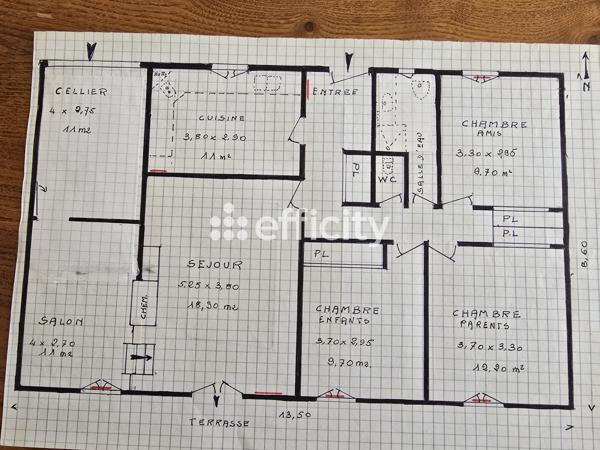 CELLIER
4 x 2,75
11 m2
CUISINE
3,80 x 2,90
11 m²
ENTREE
PL
WC
SALLE D'EAU
CHAMBRE
AMIS
3,30 x 2,95
9,70 m²
N
PL
PL
8,60
efficity
SEJOUR
5,25 x 3,80
18,90 m2
CHEM.
SALON
4 x 2,70
11 m2
PL
CHAMBRE
ENFANTS
3,70 x 2,95
9,70 m2
CHAMBRE
PARENTS
3,70 x 3,30
12,20 m2
13,50
TERRASSE